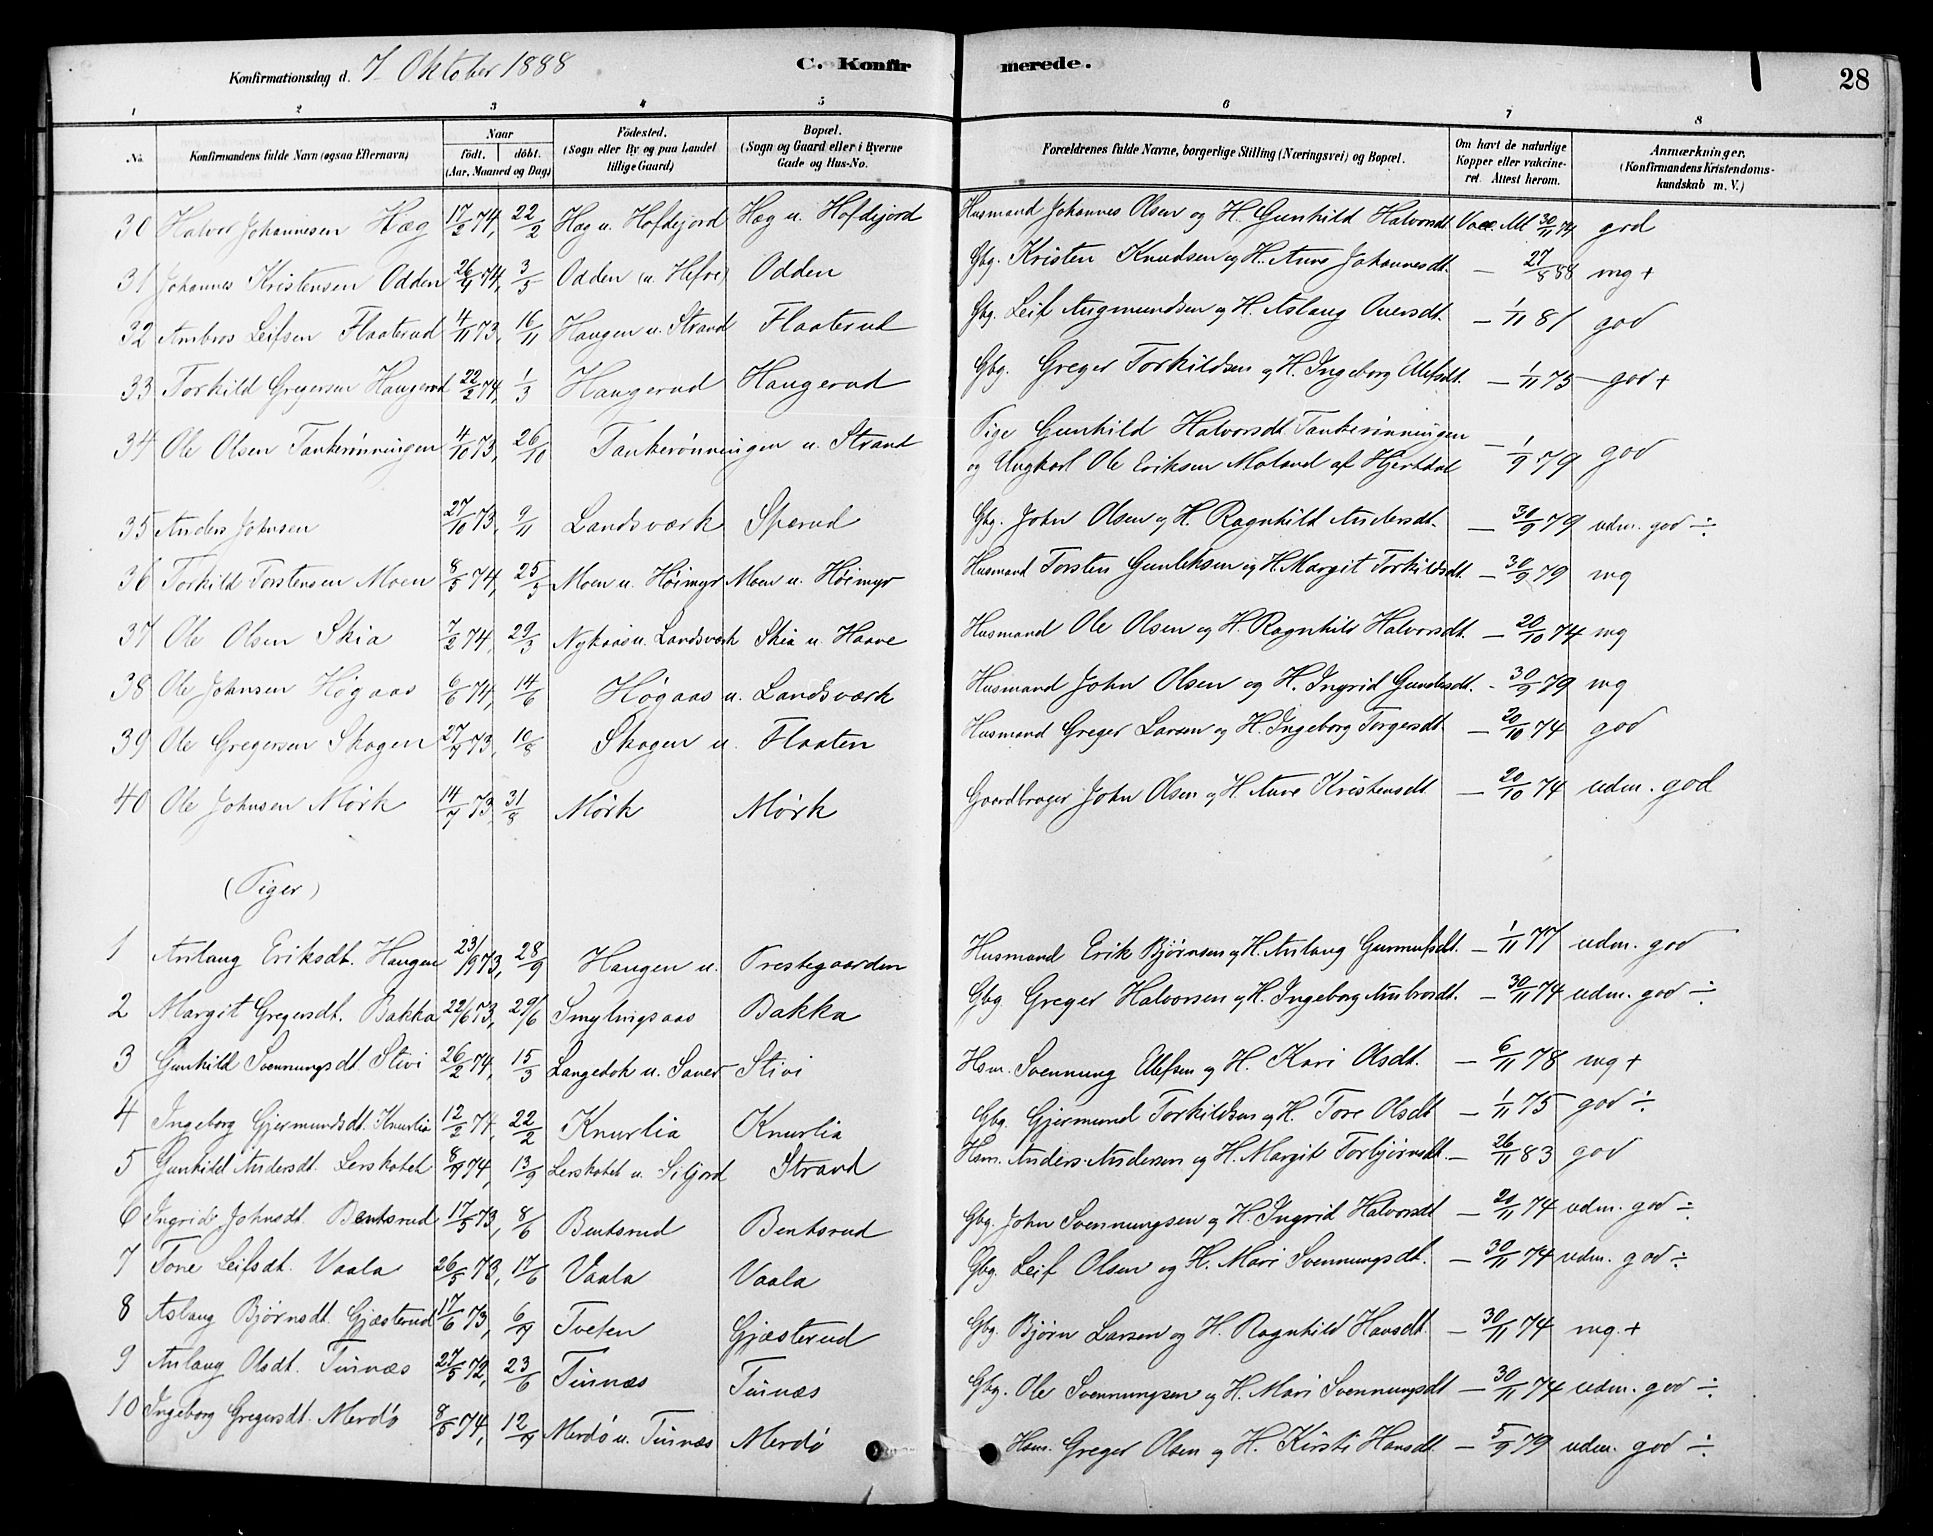 Konfirmationsdag d. 7. Oktober 1888 C. Konfirmerede. 28
1 2 3 4 5 6 7 8
No. Konfirmandens fulde Navn (ogsaa Efternavn) Naar født. døbt. (Aar, Maaned og Dag) Fødested. (Sogn eller By og paa Landet tillige Gaard) Bopæl. (Sogn og Gaard eller i Byerne Gade og Hus-No. Forældrenes fulde Navne, borgerlige Stilling (Næringsvei) og Bopæl. Om havt de naturlige Kopper eller vakcineret. Attest herom. Anmærkninger. (Konfirmandens Kristendomskundskab m. V.)
30 Halvor Johannesen Hæg 17/2 74, 22/2 Hæg u. Hofdejord Hæg u. Hofdejord Husmand Johannes Olsen og H. Gunhild Halvorsdt. Vacc. Att. 30/11 74 god
31 Johannes Kristensen Odden 26/4 74, 3/5 Odden (u. Hefre) Odden Gbg. Kristen Knudsen og H. Anne Johannesdt. — 27/8 88 mg +
32 Ambros Leifsen Flaaterud 4/11 73, 16/11 Haugen u. Strand Flaaterud Gbg. Leif Augmundsen og H. Aslaug Oversdt. — 1/11 81 god
33 Torkild Gregersen Haugerud 22/2 74, 1/3 Haugerud Haugerud Gbg. Greger Torkildsen og H. Ingeborg Olefsdt. — 1/11 75 god +
34 Ole Olsen Tankerønningen 4/10 73, 26/10 Tankerønningen u. Strand Pige Gunhild Halvorsdt Tankerønningen — 1/9 79 god
og Ungkarl Ole Eriksen Moland af Hjertdal
35 Anders Johnsen 27/10 73, 9/11 Landsværk Sperud Gbg. John Olsen og H. Ragnhild Andersdt. — 30/9 79 udm. god ÷
36 Torkild Torstensen Moen 8/5 74, 25/5 Moen u. Høimyr Moen u. Høimyr Husmand Torsten Gunleksen og H. Margit Torkildsdt. — 30/9 79 mg
37 Ole Olsen Skia 7/2 74, 29/3 Nykaas u. Landsværk Skia u. Haave Husmand Ole Olsen og H. Ragnhild Halvorsdt. — 20/10 74 mg
38 Ole Johnsen Høgaas 6/6 74, 14/6 Høgaas u. Landsværk Husmand John Olsen og H. Ingrid Gundersdt. - 30/9 79 mg
39 Ole Gregersen Skogen 27/7 73, 10/8 Skogen u. Flaaten Husmand Greger Larsen og H. Ingeborg Torgersdt — 20/10 74 god
40 Ole Johnsen Mørk 14/7 73 31/8 Mørk Mørk Gaardbruger John Olsen og H. Anne Kristensdt — 20/10 74 udm. god
(Piger)
1 Anlaug Eriksdt. Haugen 23/9 73, 28/9 Haugen u. Prestegaarden Husmand Erik Bjørnsen og H. Anlaug Gunnufsdt. — 1/11 77 udm. god
2 Margit Gregersdt. Bakka 22/6 73, 29/6 Smylingsaas Bakka Gbg. Greger Halvorsen og H. Ingeborg Ambrosdt. — 30/11 74 udm. god ÷
3 Gunhild Svennungsdt. Stivi 26/2 74, 15/3 Langedok u. Saner Stivi Hsm. Svennung Olefsen og H. Kari Olsdt. — 6/11 78 mg +
4 Ingeborg Gjermundsdt. Knurlia 12/2 74, 22/2 Knurlia Knurlia Gbg. Gjermund Torkildsen og H. Tore Olsdt — 1/11 75 god ÷
5 Gunhild Andersdt. Lerskotet 8/9 74, 13/9 Lerskotet u. Siljord Strand Hsm. Anders Andersen og H. Margit Torbjørnsdt. — 26/11 83 god
6 Ingrid Johnsdt. Bentsrud 17/5 73, 8/6 Bentsrud Bentsrud Gbg. John Svennungsen og H. Ingrid Halvorsdt — 20/11 74 udm. god ÷
7 Tone Leifsdt. Vaala 26/5 73, 17/6 Vaala Vaala Gbg. Leif Olsen og H. Mari Svennungsdt. — 30/11 74 udm. god ÷
8 Aslaug Bjørnsdt. Gjæsterud 17/6 73, 6/7 Tveten Gjæsterud Gbg. Bjørn Larsen og H. Ragnhild Hansdt. — 30/11 74 mg. +
9 Anlaug Olsdt. Tinnæs 27/5 72, 23/6 Tinnæs Tinnæs Gbg. Ole Svennungsen og H. Mari Svennungsdt — 30/11 74 udm. god ÷
10 Ingeborg Gregersdt. Merdø 8/5 74, 12/7 Merdø u. Tinnæs Merdø Hsm. Greger Olsen og H. Kirsti Hansdt — 5/9 79 udm. god ÷